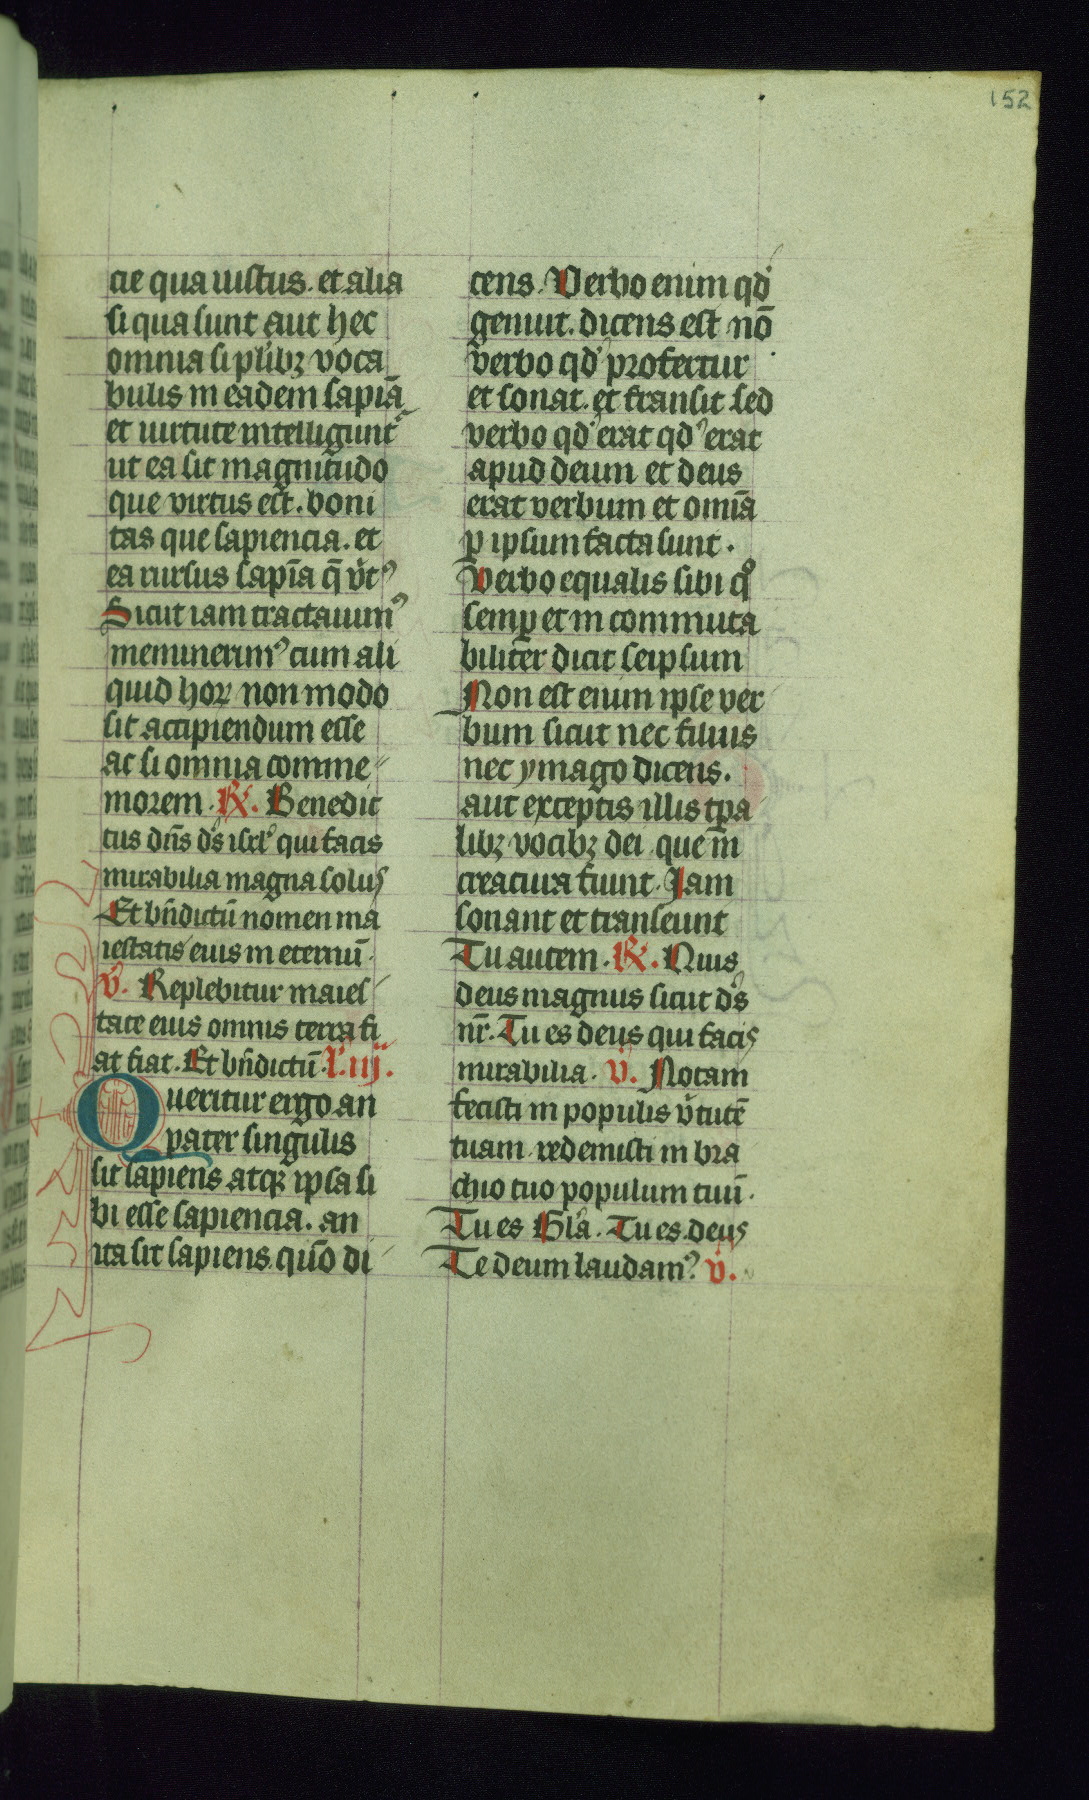 152
cie qua iustus. et alia
si qua sunt aut hec
omnia si plibꝫ voca
bulis in eadem sapiā
et uirtute intelligunt᷑
ut ea sit magnitudo
que virtus est. boni
tas que sapiencia. et
ea rursus sapīa q̄ v̓tꝰ
Sicut iam tractauimꝰ
meminerimꝰ cum ali
quid hoꝝ non modo
sit accipiendum esse
ac si omnia comme
morem. ℟. Benedic
tus dn̄s ds̄ isrl̓ qui facis
mirabilia magna solus
Et bn̄dictū nomen ma
iestatis eius in eternū.
v̓. Replebitur maies
tate eius omnis terra fi
at fiat. Et bn̄dictū. l̓. iij.
Queritur ergo an
pater singulis
sit sapiens atqꝫ ipsa si
bi esse sapiencia. an
ita sit sapiens. quō di
cens. Verbo enim qd̓
genuit. dicens est nō
verbo qd̓ profertur
et sonat. et transit sed
verbo qd̓ erat qd̓ erat
apud deum et deus
erat verbum et omīa
ꝑ ipsum facta sunt.
Verbo equalis sibi qͦ
semꝑ et in commuta
biliter dicit seipsum
Non est enim ipse ver
bum sicut nec filius
nec ymago dicens.
aut exceptis illis tp̄a
libꝫ vocibꝫ dei que in
creatura fiunt. Jam
sonant et transeunt
Tu autem. ℟. Quis
deus magnus sicut ds̄
nr̄. Tu es deus qui facis
mirabilia. v̓. Notam
fecisti in populis v̓tutē
tuam. redemisti in bra
chio tuo populum tuū.
Tu es Gl̓a. Tu es. deus
Te deum laudamꝰ v̓.